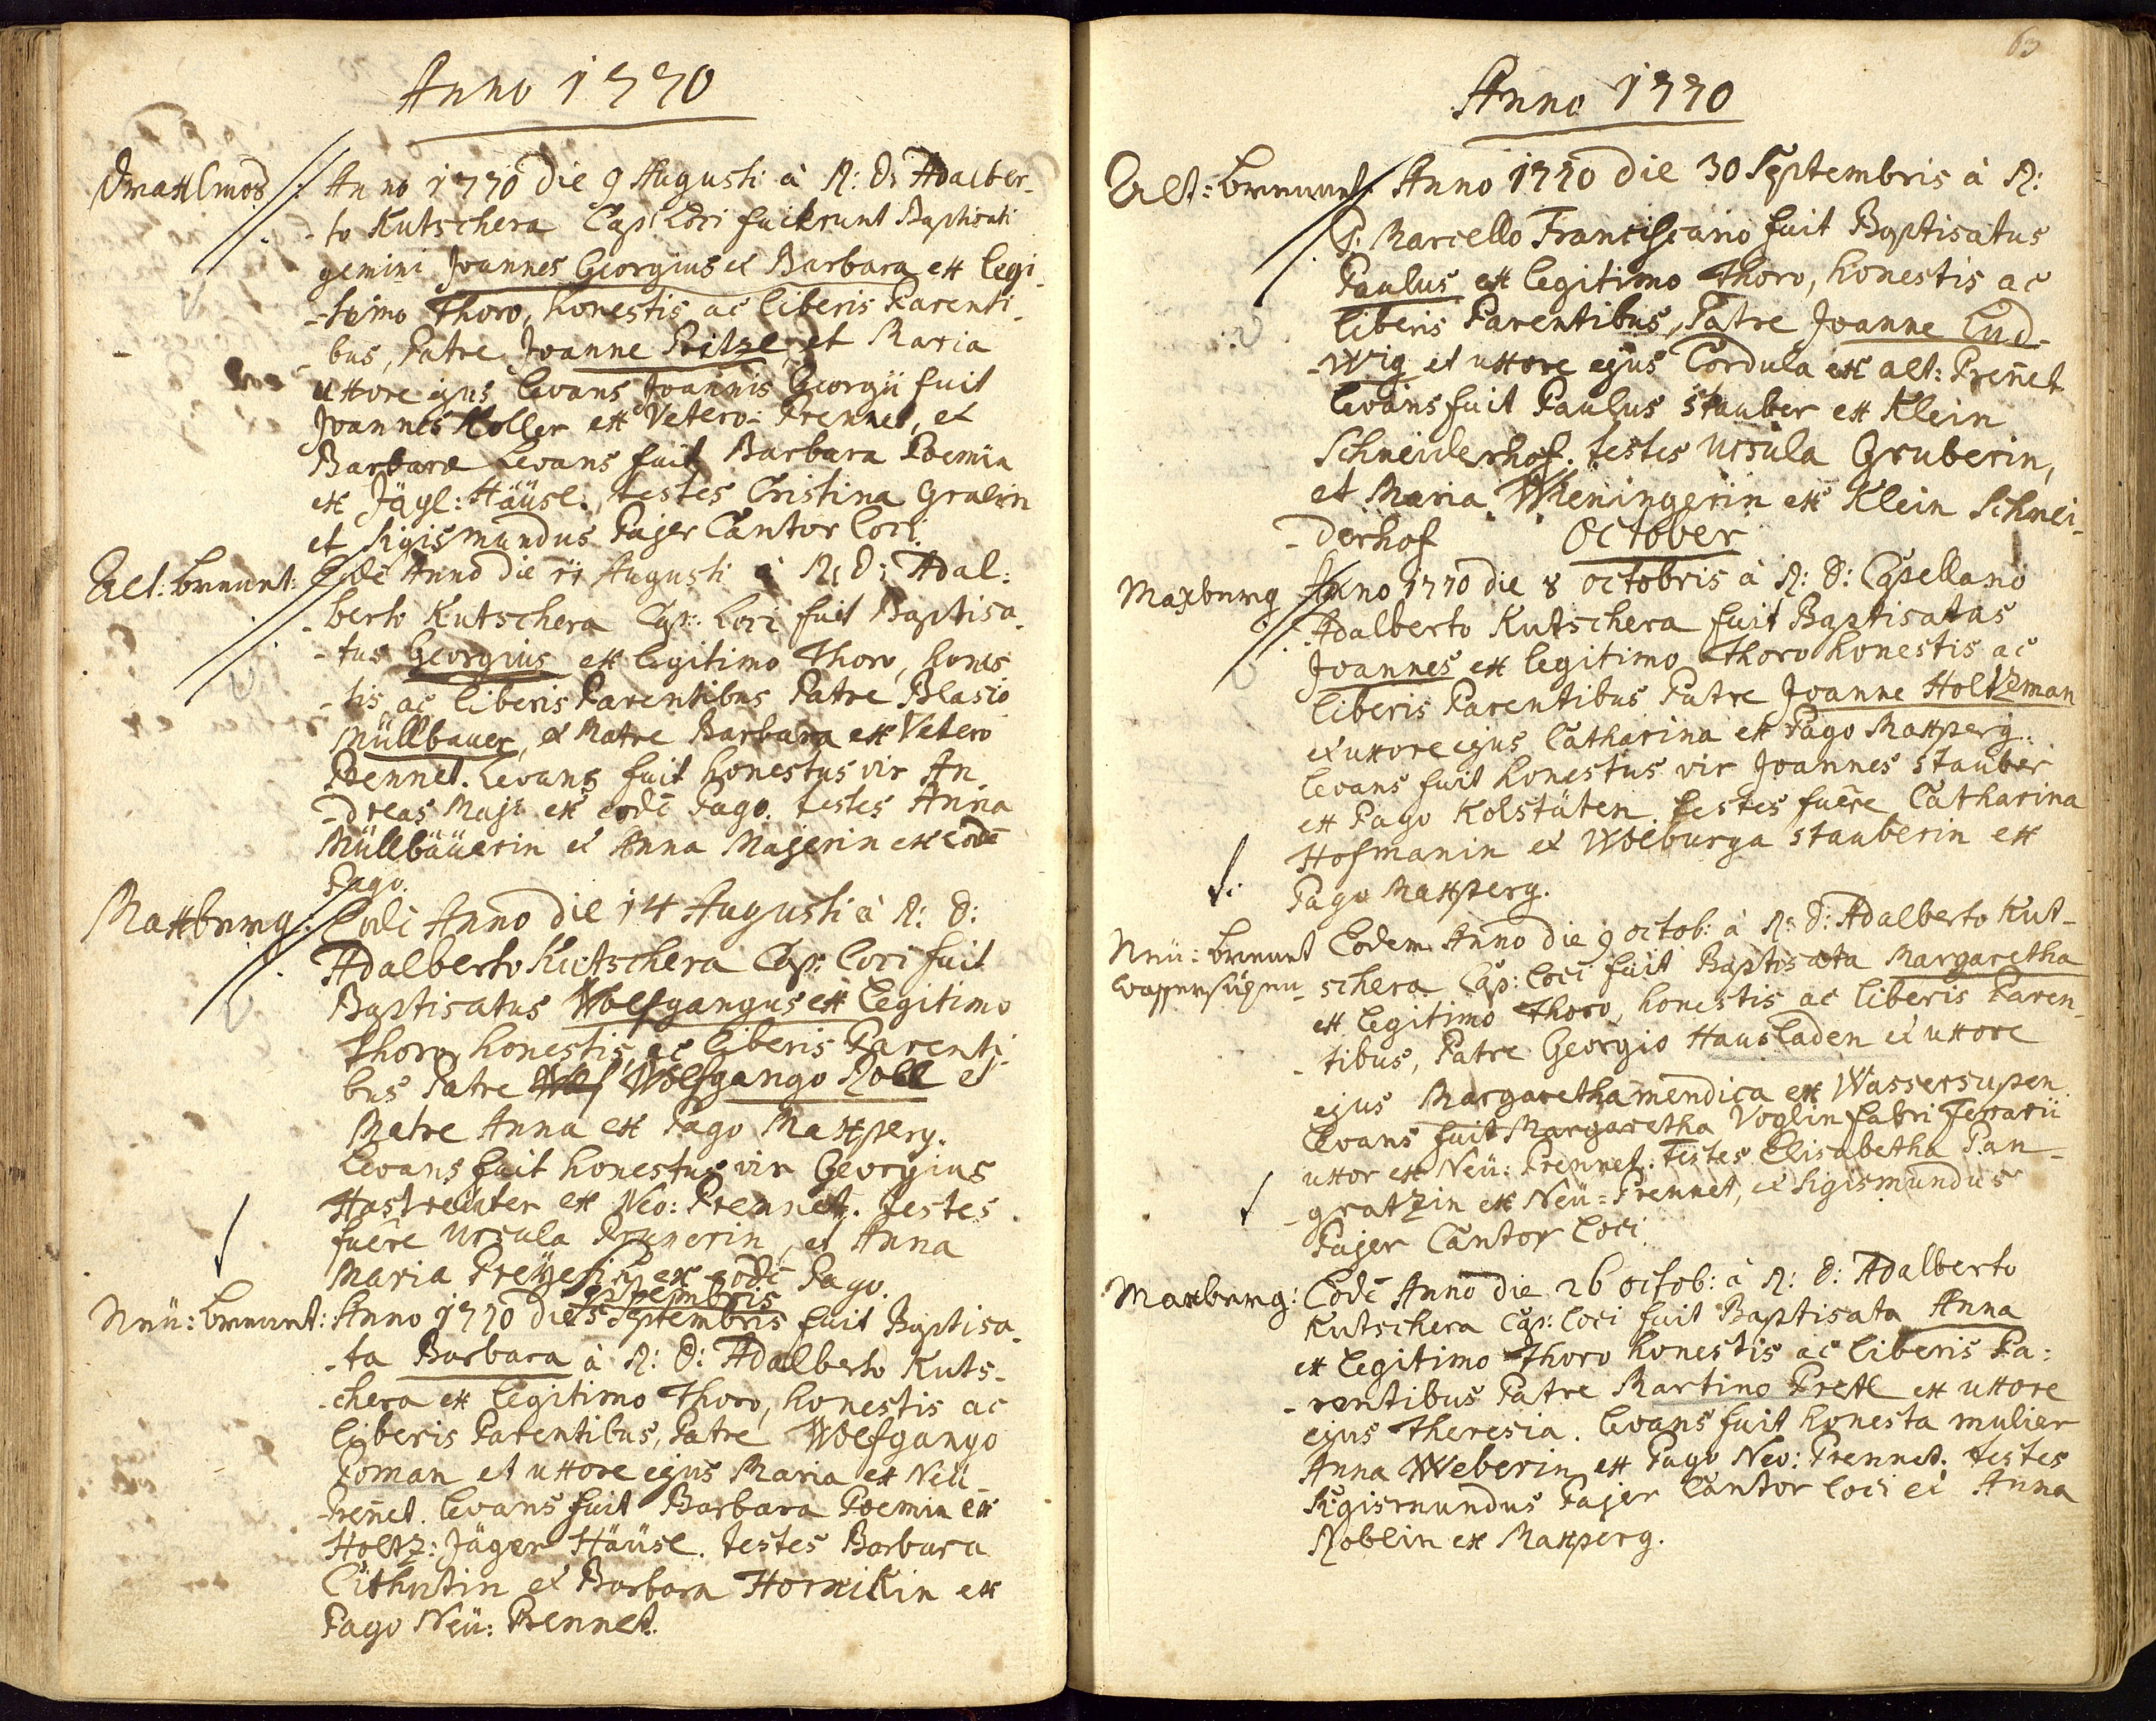 Anno 1770
Anno 1770 die 9 Augusti à R: D: Adalber-
-to Kutschera Cap: Loci fuerunt Baptisati
gemini Joannes Georgius et Barbara ex legi-
-timo Thoro, honestis ac liberis Parenti-
-bus, Patre Joanne Pritzl, et Maria
uxore ejus levans Joannis Georgii fuit
Joannes Koller ex Vetero: Prennet, et
Barbara levans fuit Barbara Poemin
ex Jägl: Häüsl., testes Cristina Gralin
et Sigismundus Pajer Cantor loci.
Alt: brennt: Eodē Anno die 11 Augusti à R: D: Adal:
-berto Kutschera Cap: Loci fuit Baptisa-
-tus Georgius ex legitimo Thoro, hones
-tis, ac liberis Parentibus Patre Blasio
Müllbauer, et Matre Barbara ex Vetero
Prennet. Levans fuit honestus vir An-
-dreas Maji ex eodē Pago. testes Anna
Müllbäüerin et Anna Majerin ex eodē
Pago.
Maxburg: Eodē Anno die 14 Augusti à R: D:
Adalberto Kutschera Cap: loci fuit
Baptisatus Wolfgangus ex legitimo
Thoro, honestis, ac liberis Parenti-
bus Patre Wolf Wolfgango Robl et
Matre Anna ex Pago Maxperg.
levans fuit honestus vir Georgius
Hastreüter ex Neo: Prennet. testes
fuēre Ursula Prunerin, et Anna
Maria Preyesin ex eodē Pago.
Septembris
Neü: brennt: Anno 1770 die 5 Septembris fuit Baptisa-
-ta Barbara à R: D: Adalberto Kuts-
-chera ex legitimo Thoro, honestis ac
liberis Parentibus, Patre Wolfgango
Poman et uxore ejus Maria ex Neü-
-Preñet. levans fuit Barbara Poemin ex
Holtz: Jäger Häüsl. testes Barbara
et Barbara Hornikin ex
Pago Neü: Prennet.
63
Anno 1770
Alt: brennet: Anno 1770 die 30 Septembris à R:
P: Marcello Franciscano fuit Baptisatus
Paulus ex legitimo Thoro, honestis ac
liberis Parentibus, Patre Joanne Lud-
-wig et uxore ejus Cordula ex alt: Preñet
levans fuit Paulus Stauber ex Klein
Schneiderhof. testes Ursula Gruberin,
et Maria Wieningerin ex Klein Schnei-
-derhof
October
Maxburg Anno 1770 die 8 octobris à R: D: Capellano
Adalberto Kutschera fuit Baptisatus
Joannes ex legitimo Thoro honestis ac
liberis Parentibus Patre Joanne Holtzman
et uxore ejus Catharina ex Pago Maxperg.
levans fuit honestus vir Joannes Stauber
ex Pago Kolstäten. testes fuēre Catharina
Hofmanin et Wolburga Stauberin ex
Pago Maxperg.
Neü: brennt Eodem Anno die 9 octob: à R: D: Adalberto Kut-
-schera Cap: loci fuit Baptisata Margaretha
ex legitimo Thoro, honestis ac liberis Paren-
-tibus, Patre Georgio Hausladen et uxore
ejus Margaretha mendica ex Wassersupen
levans fuit Margaretha Voglin fabri ferrarii
uxor ex Neü: Prennet: testes Elisabetha Pan-
-gratzin ex Neü=Prennet, et Sigismundus
Pajer Cantor loci.
Maxburg: Eodē Anno die 26 octob: à R: D: Adalberto
Kutschera Cap: loci fuit Baptisata Anna
ex legitimo Thoro honestis ac liberis Pa:
-rentibus Patre Martino Pretl et uxore
ejus Theresia. levans fuit honesta mulier
Anna Weberin ex Pago Neo: Prennet. testes
Sigismundus Pajer Cantor loci et Anna
Roblin ex Maxperg.